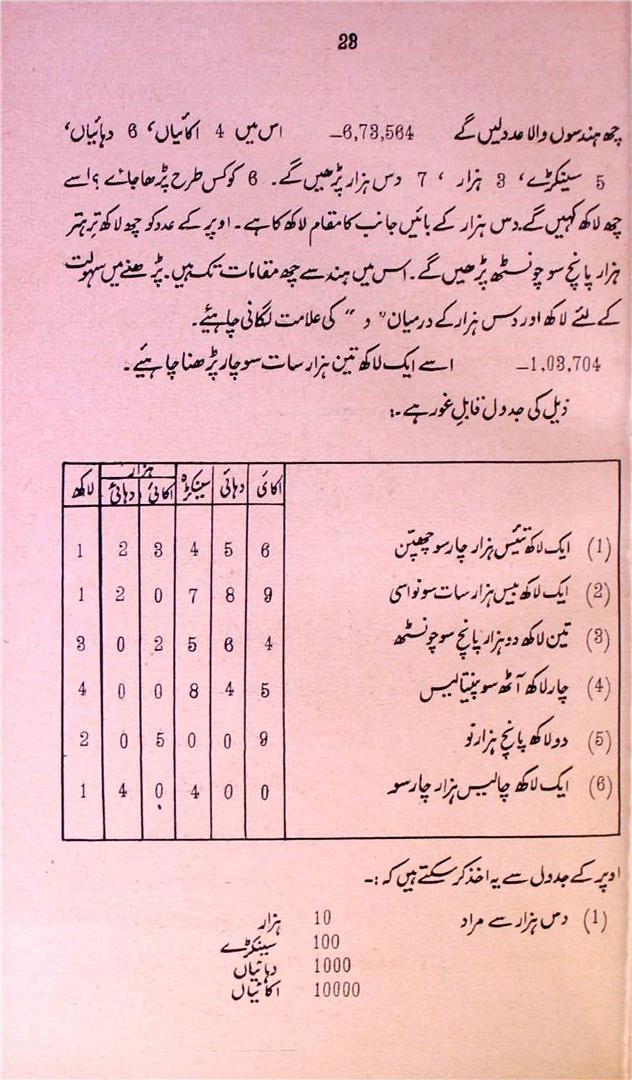 23
چھ ہندسوں والا عدد لیں گے 6,73,564_ اس میں 4 اکائیاں، 6 دہائیاں،
5 سینکڑے، 3 ہزار، 7 دس ہزار پڑھیں گے۔ 6 کو کس طرح پڑھا جائے؟ اسے
چھ لاکھ کہیں گے۔ دس ہزار کے بائیں جانب کا مقام لاکھ کا ہے۔ اوپر کے عدد کو چھ لاکھ تہتر
ہزار پانچ سو چونسٹھ پڑھیں گے۔ اس میں ہندسے چھ مقامات تک ہیں۔ پڑھنے میں سہولت
کے لئے لاکھ اور دس ہزار کے درمیان " و " کی علامت لگانی چاہیئے۔
1,03,704_ اسے ایک لاکھ تین ہزار سات سو چار پڑھنا چاہیئے۔
ذیل کی جدول قابلِ غور ہے :۔
اکائی دہائی سینکڑہ ہزار اکائی دہائی لاکھ
(1) ایک لاکھ تئیس ہزار چار سو چھپّن 6 5 4 3 2 1
(2) ایک لاکھ بیس ہزار سات سو نواسی 9 8 7 0 2 1
(3) تین لاکھ دو ہزار پانچ سو چونسٹھ 4 6 5 2 0 3
(4) چار لاکھ آٹھ سو پینتالیس 5 4 8 0 0 4
(5) دو لاکھ پانچ ہزار نو 9 0 0 5 0 2
(6) ایک لاکھ چالیس ہزار چار سو 0 0 4 0 4 1
اوپر کے جدول سے یہ اخذ کر سکتے ہیں کہ :۔
(1) دس ہزار سے مراد 10 ہزار
100 سینکڑے
1000 دہائیاں
10000 اکائیاں